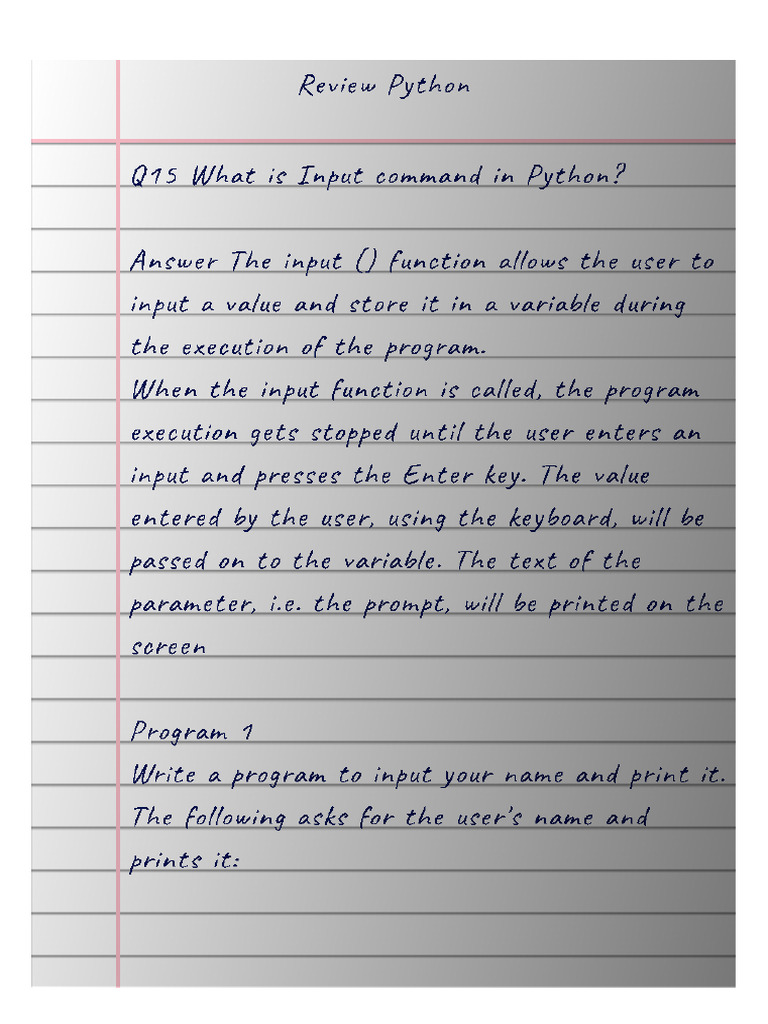 Review Python
Q15 What is Input command in Python?
Answer The input () function allows the user to
input a value and store it in a variable during
the execution of the program.
When the input function is called, the program
execution gets stopped until the user enters an
input and presses the Enter key. The value
entered by the user, using the keyboard, will be
passed on to the variable. The text of the
parameter, i.e. the prompt, will be printed on the
screen
Program 1
Write a program to input your name and print it.
The following asks for the user's name and
prints it: